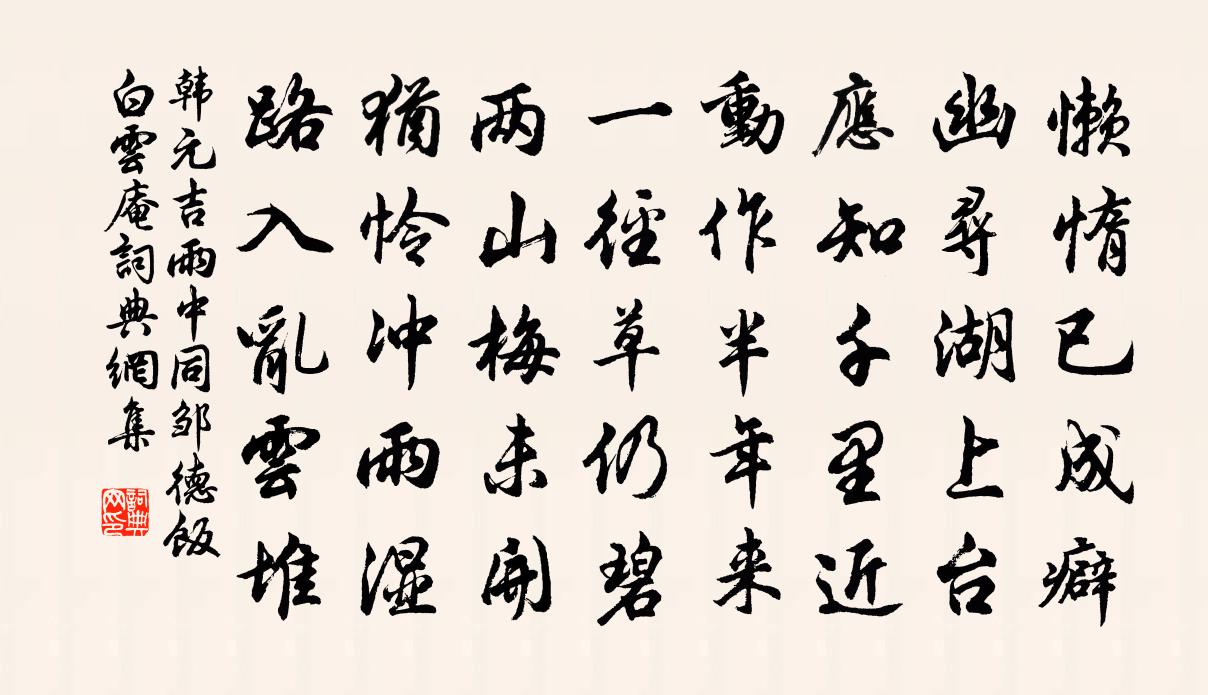 懒惰已成癖
幽尋湖上台
應知千里近
動作半年来
一徑草仍碧
两山梅未開
猶怜冲雨湿
路入亂雲堆
韩元吉雨中同邹德飯
白雲庵詞典網集
詞典网印